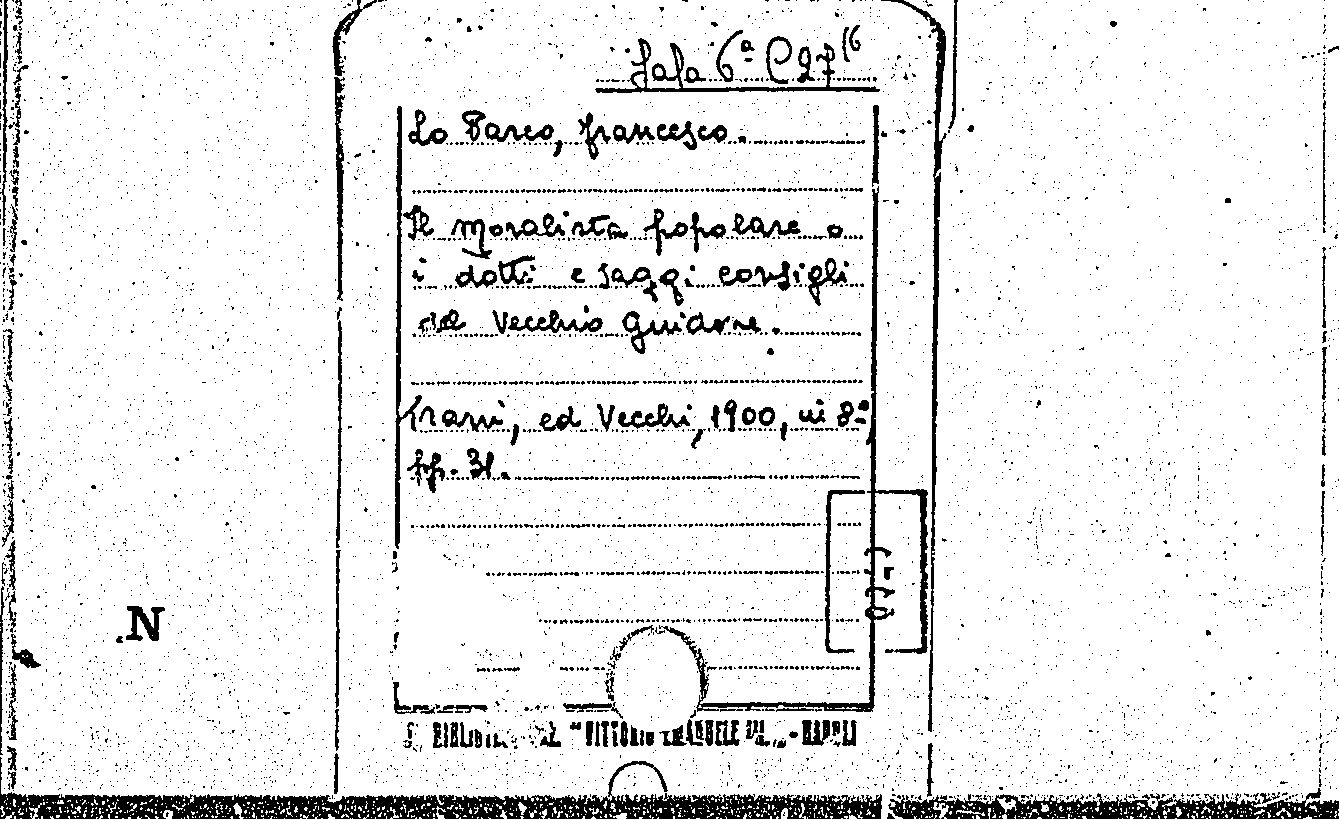 Sala 6ª C 27 16
Lo Parco, Francesco.
Il moralista popolare o
i dotti e saggi consigli
del Vecchio Guidone.
Trani, ed Vecchi, 1900, in 8º,
pp. 31.
N
"VITTORIO EMANUELE - NAPOLI